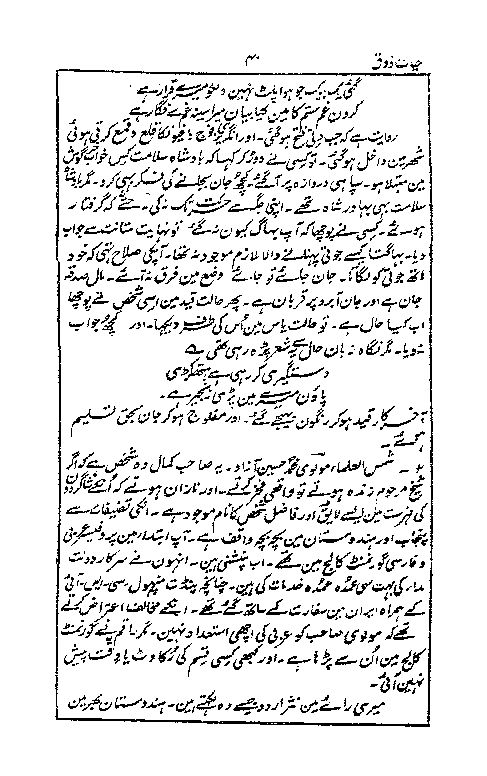 حیات ذوق
۴۰
گئی یک بیک جو ہوا پلٹ نہین دلکو میرے قرار ہے
کرون غم ستم کا مین کیا بیان میرا سینہ غم سے فگار ہے
روایت ہے کہ جب دلی فتح ہو گئی۔ اور انگریزی فوج باغیونکا قلع و قمع کرتی ہوئی
شہر مین داخل ہو گئی۔ تو کسی نے دوڑ کر کہا کہ بادشاہ سلامت کس خواب خرگوش
مین مبتلا ہو۔ سپاہی دروازہ پر آ گئے۔ کچھ جان بچانے کی فکر بھی کرو۔ مگر بادشاہ
سلامت بھی بہادر شاہ تھے۔ اپنی جگہ سے حرکت تک نہ کی۔ حتےٰ کہ گرفتار
ہو گئے۔ کسی نے پوچھا کہ آپ بھاگ کیون نہ گئے۔ تو نہایت متانت سے جواب
دیا۔ بھاگتا کیسے جوتی پہنانے والا ملازم موجود نہ تھا۔ آپکی صلاح تھی کہ خود
اٹھے جوتی کو لگاتا۔ جان جائے تو جائے وضع مین فرق نہ آئے۔ مال صدقہ
جان ہے اور جان آبرو پر قربان ہے۔ پھر حالت قید مین اسی شخص نے پوچھا
اب کیا حال ہے۔ تو حالت یاس مین اُس کی طرف دیکھا۔ اور کچھ جواب
نہ دیا۔ مگر نگاہ زبان حال سے یہ شعر پڑھ رہی تھی ے
دستگیری کر رہی ہے ہتھکڑی
پاؤن میرے مین پڑی زنجیر ہے۔
آخر کار قید ہو کر رنگون بھیجے گئے۔ اور مفلوج ہو کر جان بحق تسلیم
ہوئے۔
شمس العلماء مولوی محمد حسین آزاد۔ یہ صاحب کمال وہ شخص ہے کہ اگر
شیخ مرحوم زندہ ہوتے تو واقعی فخر کرتے۔ اور نازان ہوتے کہ اُنکے شاگردون
کی فہرست مین ایسے لایق اور فاضل شخص کا نام موجود ہے۔ انکی تصنیفات سے
پنجاب اور ہندوستان مین بچہ بچہ واقف ہے۔ آپ ابتدا مین پروفیسر عربی
و فارسی گورنمنٹ کالج مین تھے۔ اب پنشنی ہین۔ انہون نے سرکار دولت
مدار کی بہت سی عمدہ عمدہ خدمات کی ہین۔ چنانچہ پنڈت منپھول۔ سی۔ ایس۔ آئی
کے ہمراہ ایران مین سفارت کے ساتھ گئے تھے۔ انکے مخالف اعتراض کرتے
تھے کہ مولوی صاحب کو عربی کی اچھی استعداد نہین۔ مگر راقم نے گورنمنٹ
کالج مین اُن سے پڑھا ہے۔ اور کبھی کسی قسم کی رُکاوٹ یا وقت پیش
نہین آئی۔
میری رائے مین نثر اردو جیسے وہ لکھتے ہین۔ ہندوستان بھر مین